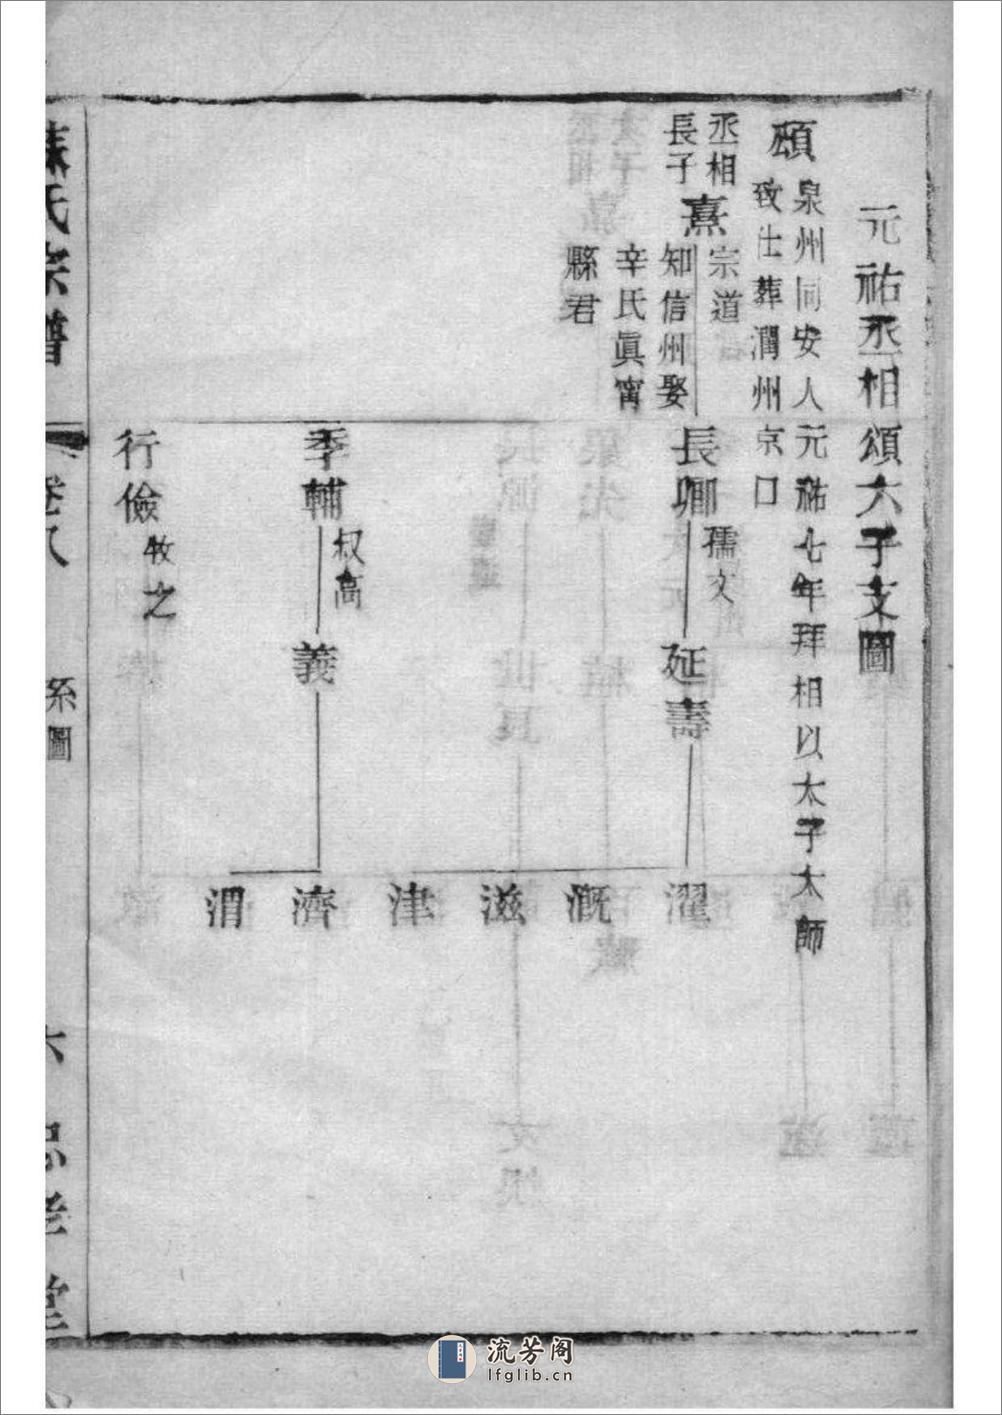 元祐丞相頌六子支圖
頌
泉州同安人元祐七年拜相以太子太師
致仕葬潤州京口
丞相
長子
熹
宗道
知信州娶
辛氏眞甯
縣君
長卿
孺文
延壽
濯
溉
滋
津
季輔
叔高
義
濟
渭
行儉
牧之
蘇氏宗譜
卷八
系圖
六
忠孝堂
流芳阁
lfglib.cn